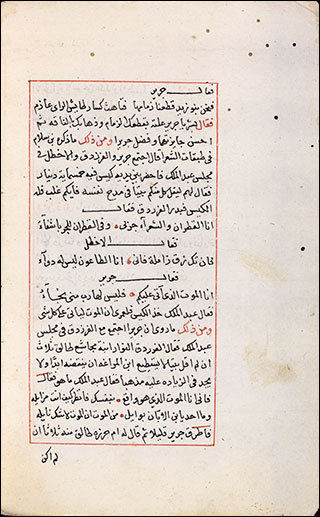 فقال جرير
فقال لبشر يا جرير عليه بقطعك الزمام وذهابك بالناقة ثم
احسن جايزتهما وفضل جريرا ومن ذلك ما ذكره بن سلام
في طبقات الشعرا قال اجتمع جرير والفرزدق والاخطل في
مجلس عبد الملك فاحضر بين يديه كيس فيه خمسماية دينار
وقال لهم ليقل كل منكم بيتا في مدح نفسه فايكم غلب فله
الكيس فبدر الفرزدق فقال
انا القطران والشعرآء جربي وفي القطران للجربا شفآء
فقال الاخطل
فان تك زق زاملة فاني انا الطاعون ليس له دوآء
فقال جرير
انا الموت الذي آتي عليكم فليس لهارب مني نجآء
فقال عبد الملك خذ الكيس فلعمري ان الموت ياتي على كل شي
ومن ذلك ما روي ان جريرا اجتمع مع الفرزدق في مجلس
عبد الملك فقال الفرزدق النوار ابنة مجاشع طالق ثلاث
ان لم اقل بيتا لا يستطيع ابن المراغة ان ينقضه ابدا ولا
يجد في الزيادة عليه مذهبا فقال عبد الملك ما هو فقال
فاني انا الموت الذي هو واقع بنفسك فانظر كيف انت مزاوله
وما احد يا بن الاتان بوايل من الموت ان الموت لا شك نايله
فاطرق جرير قليلا ثم قال له ام حزره طالق منه ثلاثا ان
لم اكن